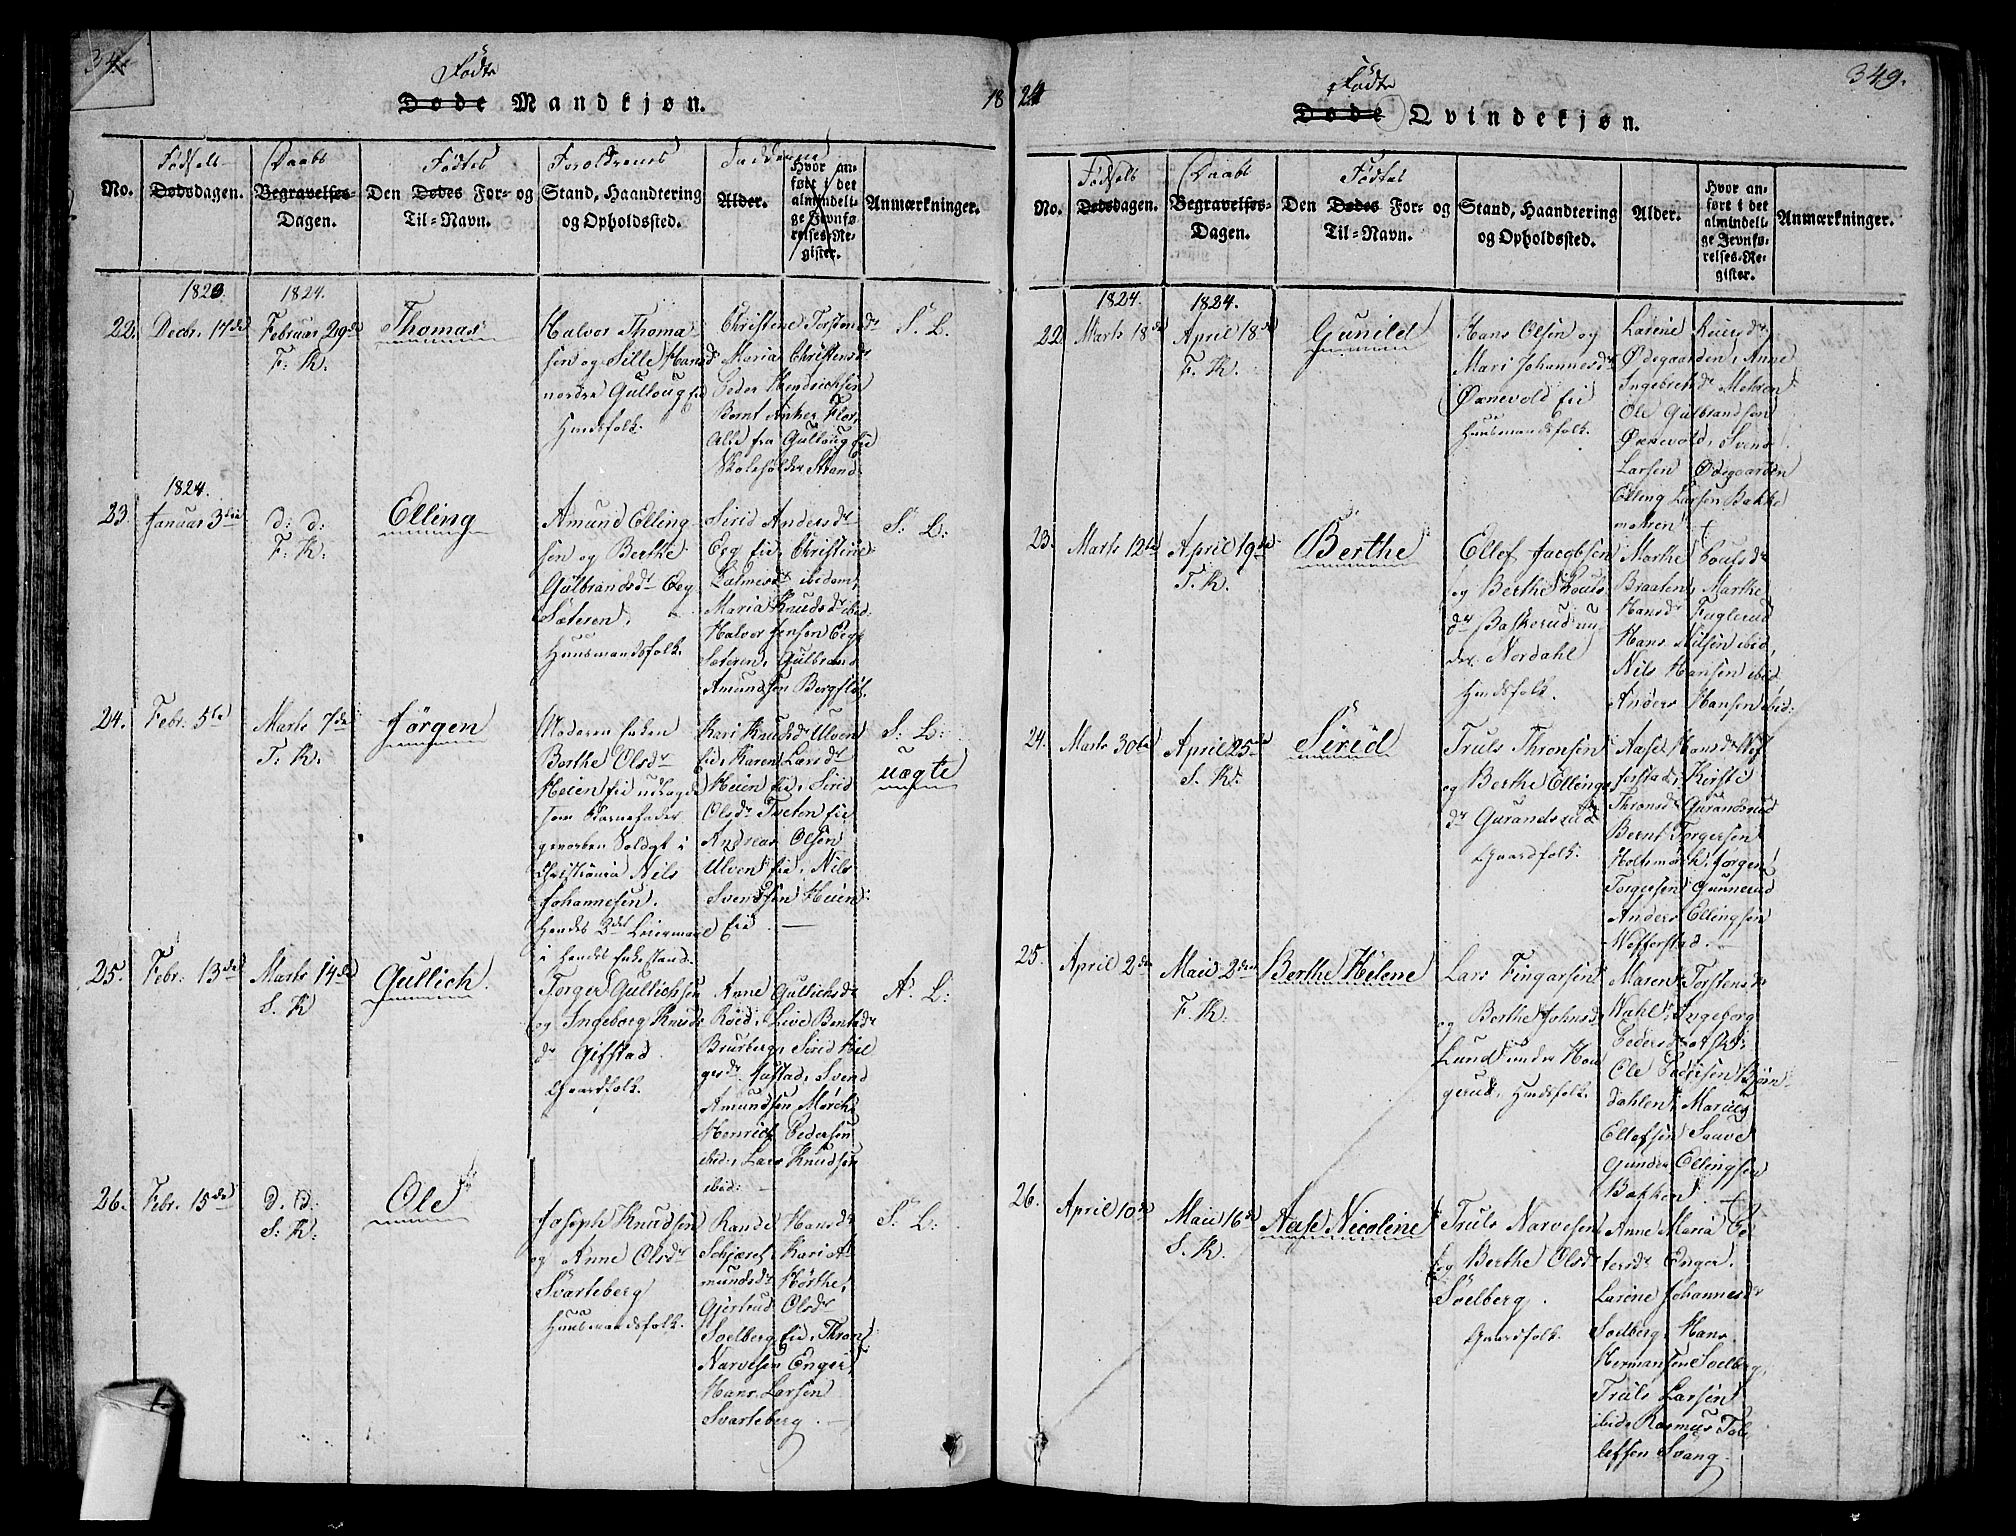 Fødte
Døde Mandkjøn.
18
Fødsels
Daabs
Fødtes
Forældrenes
Fadderne
No.
Dødsdagen.
Begravelses-
Dagen.
Den Dødes For- og
Til-Navn.
Stand, Haandtering
og Opholdssted.
Alder.
Hvor an-
ført i det
almindeli-
ge Jevnfø-
relses-Re-
gister.
Anmærkninger.
1823.
1824.
22.
Decbr. 17de
Februar 29de
F. K.
Thomas
Halvor Thoma
sen og Sille Hansd
nordre Gulloug eie
Huusfolk.
Christine Torstensdr
Maria Christensdr
Peder Hendrichsen
Bernt Anker Flor,
Alle fra Gulloug eie
Skoleholder Strand
S. L.
1824.
23.
Januar 3die
d: d:
F: K.
Elling
Amund Elling
sen og Berthe
Gulbrandsdr Eeg
Sæteren,
Huusmandsfolk.
Sirid Andersdr
Eeg eie, Christine
ibidem,
Maria Knudsdr ibid.
Halvor Jensen Eeg
Sæteren, Gulbrand
Amundsen Bergfløt.
S: L:
24.
Febr. 5te
Marts 7de
T. K.
Jørgen
Moderen Enken
Berthe Olsdr
Heien eie udlagde
som Barnefader
gevorben Soldat i
Christiania Nils
Johannesen.
Hendes 3die Leiermaal
i hendes Enkestand.
Kari Knudsdr Ulven
eie, Karen Larsdr
Heien eie, Sirid
Olsdr Tveten eie
Andreas Olsen
Ulven eie, Nils
Svendsen Heien
eie
S: L:
uægte
25.
Febr. 13de
Marts 14de
S. K
Gullich
Torger Gullichsen
og Ingeborg Knuds
dr Gifstad
Gaardfolk.
Anne Gullichsdr
Røed, Live Bentsdr
Bruberg, Sirid Hel
gesdr Justad, Svend
Amundsen Mørch
Henrich Pedersen
ibid:, Lars Knudsen
ibid:
A. L:
26.
Febr. 15de
d. d.
S: K:
Ole
Joseph Knudsen
og Anne Olsdr
Svarteberg
Huusmandsfolk.
Rande Hansdr
Schjæret, Kari A
mundsdr Hørthe,
Gjertrud Olsdr
Soelberg eie, Thron
Narvesen Enger,
Hans Larsen
Svarteberg.
S. L:
24
349.
Fødte
Døde Qvindekjøn.
Fødsels
Daabs
Fødtes
No.
Dødsdagen.
Begravelses-
Dagen.
Den Dødes For- og
Til-Navn.
Stand, Haandtering
og Opholdssted.
Alder.
Hvor an-
ført i det
almindeli-
ge Jevnfø-
relses-Re-
gister.
Anmærkninger.
1824.
1824.
22.
Marts 18de
April 18de
F. K.
Gunild
Hans Olsen og
Mari Johannesdr
Øxnevold eie
Huusmandsfolk.
Larine
Ødegaarden, Anne
Ingebretsdr Mohren
Ole Gulbrandsen
Øxnevold, Svend
Larsen Ødegaarden
Elling Larsen Bakke
mohren
23.
Marts 12te
April 19de
T. K.
Berthe
Ellef Jacobsen
og Berthe Pouls
dr Baskerud un
der Nordahl
Huusfolk.
Marthe Poulsdr
Braaten, Marthe
Hansdr Fuglerud
Hans Nilsen ibid,
Nils Hansen ibid,
Anders Hansen ibid:
24.
Marts 30te
April 25de
S. K:
Sirid
Truls Thronsen
og Berthe Ellings
dr Gurandsrud
Gaardfolk.
Aase Hansdr Wof
ferstad, Kirsti
Thronsdr Gurandsrud
Bernt Torgersen
Holtsmark, Jørgen
Torgersen Gunnerud
Anders Ellingsen
Wofferstad.
25.
April 2den
Maii 2den
F. K:
Berthe Helene
Lars Fingarsen
og Berthe Johnsdr
Lund under Hou
gerud, Huusfolk.
Maren Torstensdr
Wahl, Ingeborg
Pedersdr
Ole Pedersen Bjørn
dahlen, Marius
Ellefsen Saave
Gunder Ellingsen
Bakken.
26.
April 10de
Maii 16de
S. K.
Aase Nicoline
Truls Narvesen
og Berthe Olsdr
Soelberg.
Gaardfolk.
Anne Maria Pe
tersdr Enger.
Larine Johannesdr
Soelberg, Hans
Hermansen Soelberg,
Truls Larsen
ibid, Rasmus Tol
lefsen Svang.